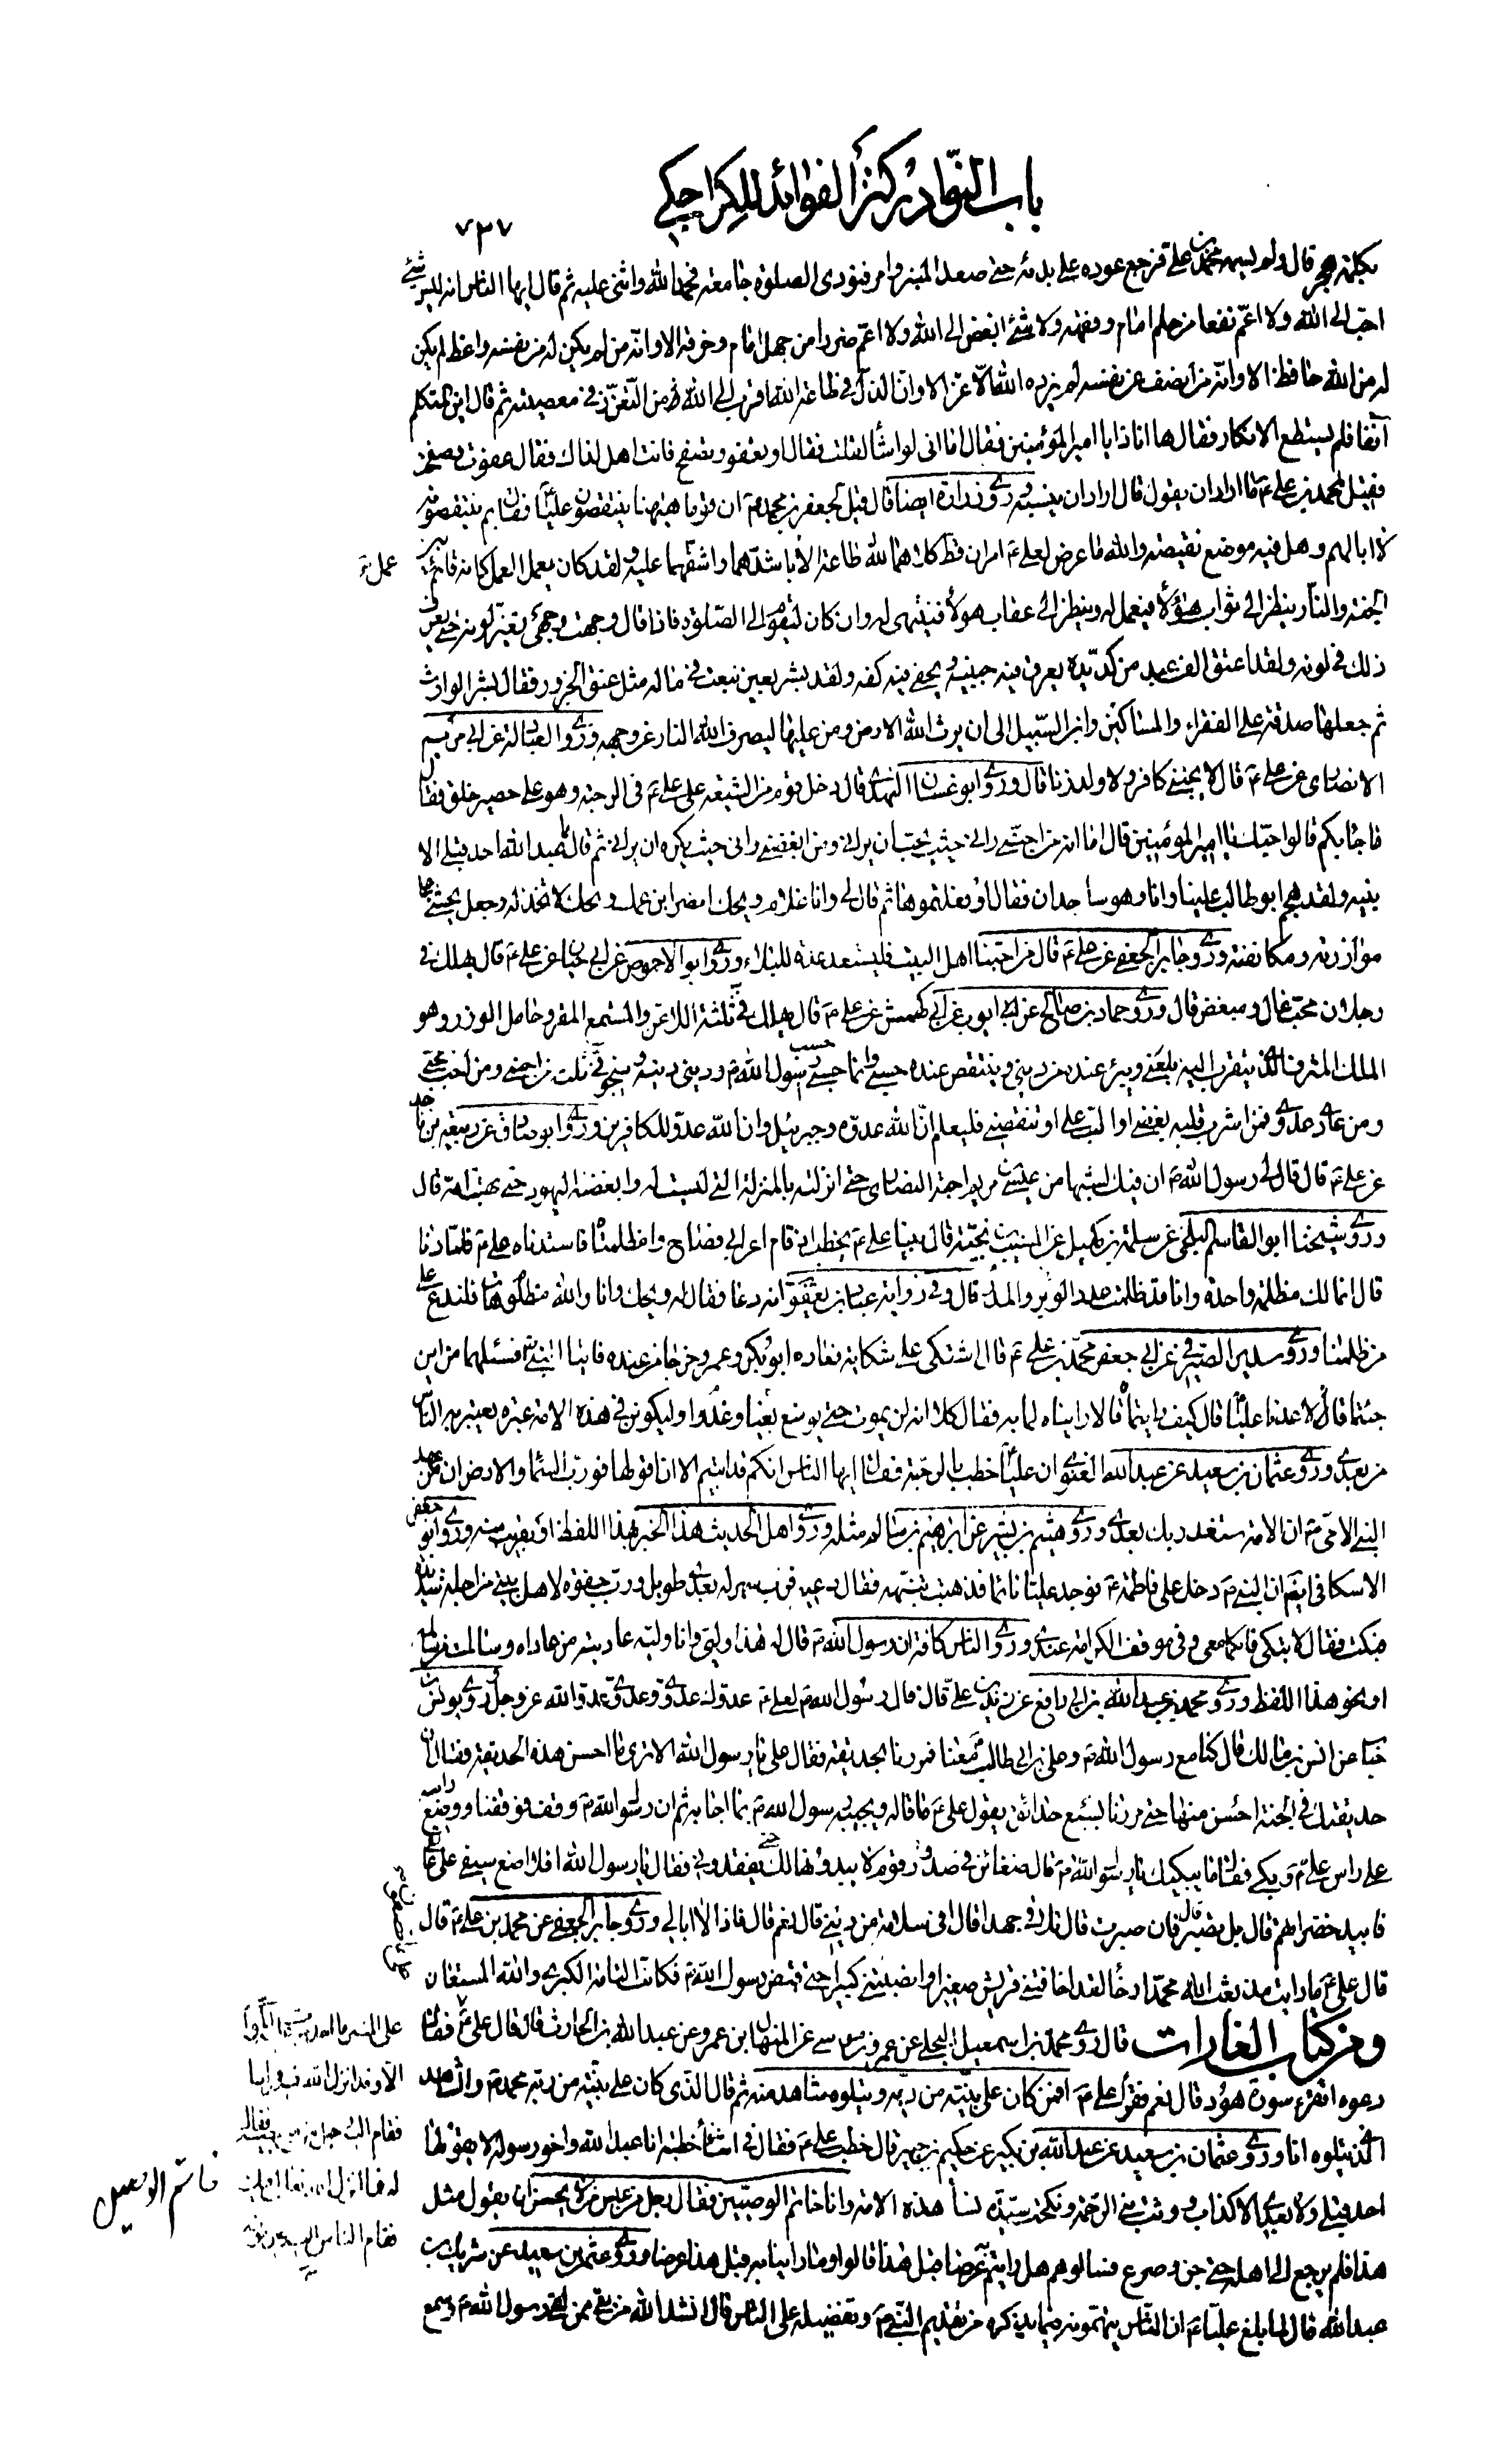 باب النوادر كنز الفوائد للكراجكي
٧٣٧
بكلمة هجر قال ولم يسمه محمد بن علي فرجع عوده على بدئه حتى صعد المنبر وامر فنودي الصلوة جامعة فحمد الله واثنى عليه ثم قال ايها الناس انه ليس شئ
احب الى الله ولا اعم نفعا من حلم امام وفقهه ولا شئ ابغض الى الله ولا اعم ضررا من جهل امام وخرقه الا وانه من لم يكن له من نفسه واعظ لم يكن
له من الله حافظ الا وانه من انصف من نفسه لم يزده الله الا عزا الا وان الذل في طاعة الله اقرب الى الله من التعزز في معصيته ثم قال اين المتكلم
آنفا فلم يستطع الانكار فقال ها انا ذا يا امير المؤمنين فقال اما اني لو اشاء لقلت فقال او تعفو وتصفح فانت اهل لذلك فقال عفوت وصفحت
فقيل لمحمد بن علي ع ما اراد ان يقول قال اراد ان ينسبه وروى زرارة ايضا قال قيل لجعفر بن محمد ع ان قوما هيهنا ينتقصون عليا فقال بم ينتقصونه
لا ابا لهم وهل فيه موضع نقيصة والله ما عرض لعلي ع امران قط كلاهما لله طاعة الا باشدهما واشقهما عليه ولقد كان يعمل العمل كانه قائم بين
عمل ع
الجنة والنار ينظر الى ثواب هؤلاء فيعمل له وينظر الى عقاب هؤلاء فينتهى له وان كان ليقوم الى الصلوة فاذا قال وجهت وجهي تغير لونه حتى يعرف
ذلك في لونه ولقد اعتق الف عبد من كد يده يعرق فيه جبينه ويحفى فيه كفه ولقد بشر بعين نبعت في ماله مثل عنق الجزور فقال بشر الوارث
ثم جعلها صدقة على الفقراء والمساكين وابن السبيل الى ان يرث الله الارض ومن عليها ليصرف الله النار عن وجهه وروى القناد عن ابي مريم
الانصاري عن علي ع قال لا يحبني كافر ولا ولد زنا قال وروى ابو غسان النهدي قال دخل قوم من الشيعة على علي ع في الرحبة وهو على حصير خلق فقال
ما جاء بكم قالوا حبك يا امير المؤمنين قال اما انه من احبني رآني حيث يحب ان يراني ومن ابغضني رآني حيث يكره ان يراني ثم قال ما عبد الله احد قبلي الا
نبيه ولقد هجم ابو طالب علينا وانا وهو ساجدان فقال او فعلتموها ثم قال لي وانا غلام ويحك انصر ابن عمك ويحك لا تخذله وجعل يحثني على
موازرته ومكانفته وروى جابر الجعفي عن علي ع قال من احبنا اهل البيت فليستعد عدة للبلاء وروى ابو الاحوص عن ابي حيان عن علي ع قال يهلك في
رجلان محب غال ومبغض قال وروى حماد بن صالح عن ايوب عن ابي كهمش عن علي ع قال يهلك في ثلثة اللاعن والمستمع المقر وحامل الوزر وهو
الملك المترف الذي يتقرب اليه بلعني ويبرء عنده من ديني وينتقص عنده حسبي وانما حسبي حسب رسول الله ص وديني دينه وينجو في ثلث من احبني ومن احب محبي
ومن عادى عدوي فمن اشرب قلبه بغضي او الب على او تنقصني فليعلم ان الله عدوه وجبرئيل وان الله عدو للكافرين وروى ابو صادق عن ربيعة بن ناجد
عن علي ع قال قال لي رسول الله ص ان فيك لشبها من عيسى بن مريم احبته النصارى حتى انزلته بالمنزلة التي ليست له وابغضته اليهود حتى بهتت امه قال
وروى شيخنا ابو القاسم البلخي عن سلمة بن كهيل عن المسيب بن نجية قال بينا علي ع يخطب اذ قام اعرابي فصاح وا مظلمتاه فاستدناه علي ع فلما دنا
قال انما لك مظلمة واحدة وانا قد ظلمت عدد الوبر والمدر قال وفي رواية عباد بن يعقوب انه دعاه فقال له ويحك وانا والله مظلوم هات فلندع على
من ظلمنا وروى سدير الصيرفي عن ابي جعفر محمد بن علي ع قال اشتكى علي شكاية فعاده ابو بكر وعمر وخرجا من عنده فاتيا النبي ص فسئلهما من اين
جئتما قالا عدنا عليا قال كيف رايتماه قالا رايناه لما به فقال كلا انه لن يموت حتى يوسع بغيا وغدرا وليكونن في هذه الامة عبرة يعتبر به الناس
من بعدي وروى عثمان بن سعيد عن عبد الله الغنوي ان عليا خطب بالرحبة فقال ايها الناس انكم قد ابيتم الا ان اقولها فورب السماء والارض ان من عهد
النبي الامي ص ان الامة ستغدر بك بعدي وروى هشيم بن بشير عن ابراهيم بن سالم مثله وروى اهل الحديث هذا الخبر بهذا اللفظ او بقريب منه وروى ابو جعفر
الاسكافي ايضا ان النبي ص دخل على فاطمة ع فوجد عليا نائما فذهبت تنبهه فقال دعيه فرب سهر له بعدي طويل ورب جفوة لاهل بيتي من اجله شديدة
فبكت فقال لا تبكي فانكما معي وفي موقف الكرامة عندي وروى الناس كافة ان رسول الله ص قال له هذا وليي وانا وليه عاديت من عاداه وسالمت من سالمه
او نحو هذا اللفظ وروى محمد بن عبيد الله بن ابي رافع عن زيد بن علي قال قال رسول الله ص لعلي ع عدوك عدوي وعدوي عدو الله عز وجل وروى يونس بن
خباب عن انس بن مالك قال كنا مع رسول الله ص وعلي بن ابي طالب معنا فمررنا بحديقة فقال علي يا رسول الله الا ترى ما احسن هذه الحديقة فقال ان
حديقتك في الجنة احسن منها حتى مررنا بسبع حدائق يقول علي ع ما قاله ويجيبه رسول الله ص بما اجابه ثم ان رسول الله ص وقف فوقفنا ووضع راسه
على راس علي ع وبكى فقال ما يبكيك يا رسول الله ص قال ضغائن في صدور قوم لا يبدونها لك حتى يفقدوني فقال يا رسول الله افلا اضع سيفي على عاتقي
فابيد خضراءهم قال بل تصبر قال فان صبرت قال تلاقي جهدا قال افي سلامة من ديني قال نعم قال فاذا لا ابالي وروى جابر الجعفي عن محمد بن علي ع قال
قال علي ع ما رايت منذ بعث الله محمدا رخاء لقد اخافتني قريش صغيرا وانصبتني كبيرا حتى قبض رسول الله ص فكانت الطامة الكبرى والله المستعان
ومن كتاب الغارات قال روى محمد بن اسمعيل البجلي عن عمرو بن موسى عن المنهال بن عمرو عن عبد الله بن الحارث قال قال علي ع
دعوه اتقرء سورة هود قال نعم فقرأ علي ع افمن كان على بينة من ربه ويتلوه شاهد منه ثم قال الذي كان على بينة من ربه محمد ص والشاهد
الذي يتلوه انا وروى عثمان بن سعيد عن عبد الله بن بكير عن حكيم بن جبير قال خطب علي ع فقال في اثناء خطبته انا عبد الله واخو رسوله لا يقولها
احد قبلي ولا بعدي الا كذاب ورثت نبي الرحمة ونكحت سيدة نساء هذه الامة وانا خاتم الوصيين فقال رجل من عبس من لا يحسن ان يقول مثل
هذا فلم يرجع الى اهله حتى جن وصرع فسالوهم هل رايتم به عرضا قبل هذا قالوا وما راينا به قبل هذا عرضا وروى عثمن بن سعيد عن شريك بن
عبد الله قال لما بلغ عليا ع ان الناس يتهمونه فيما يذكره من تقديم النبي ص وتفضيله على الناس قال انشد الله من بقي ممن لقي رسول الله ص وسمع
على المنبر ما احد
الا وقد انزل الله فيه
فقام اليه رجل
فقام الناس اليه